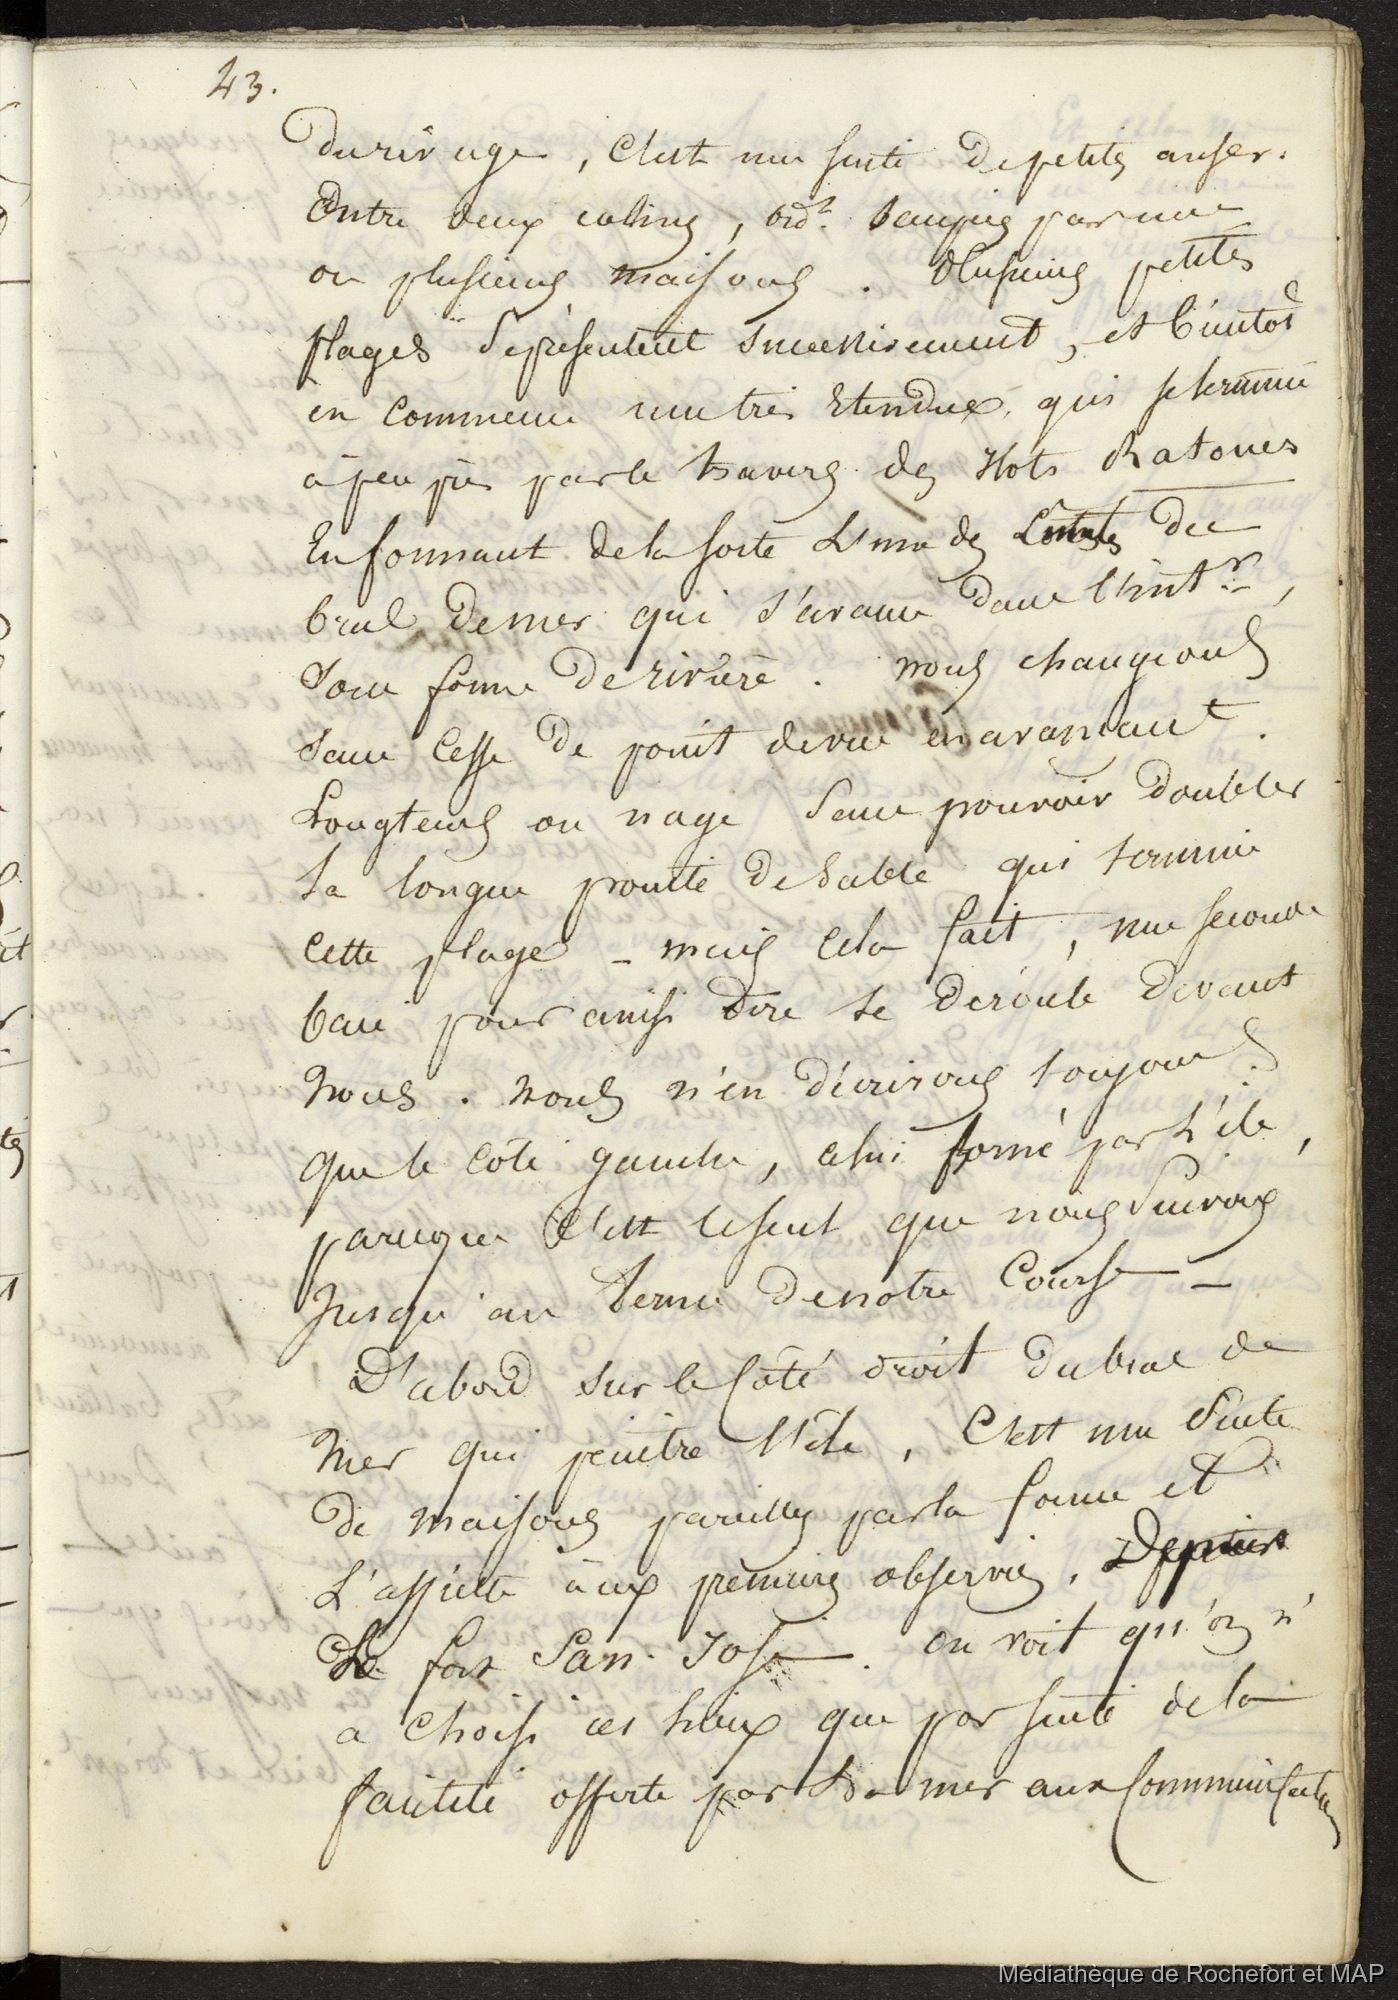 43.
du rivage, C'est une suite de petites anses.
Entre deux colines, ord.t  par une
ou plusieurs maisons. Plusieurs petites
plages se présentent successivement, et bientôt
en commence une très étendue, qui se termine
à peu près par le travers des Ilots Ratones
En formant de la sorte L'une des du
bras de mer qui s'avance dans l'int.r,
sous forme de rivière. nous changeons
sans cesse de point de vue en avançant.
Longtems on nage sans pouvoir doubler
la longue pointe de sable qui termine
cette plage - mais cela fait, une seconde
baie pour ainsi dire se déroule devant
nous. nous n'en décrirons toujours
que le côté gauche, celui formé par L'ile,
parceque C'est le seul que nous suivrons
jusqu'au terme de notre Course —
D'abord sur le Côté droit du bras de
mer qui pénètre l'ile, C'est une suite
de maisons pareilles par la forme et
L'assiette aux premieres observées. Depuis
Le fort San José. on voit qu'on n'
a choisi ces lieux que par suite de la
facilité offerte par La mer aux Communications
Médiathèque de Rochefort et MAP